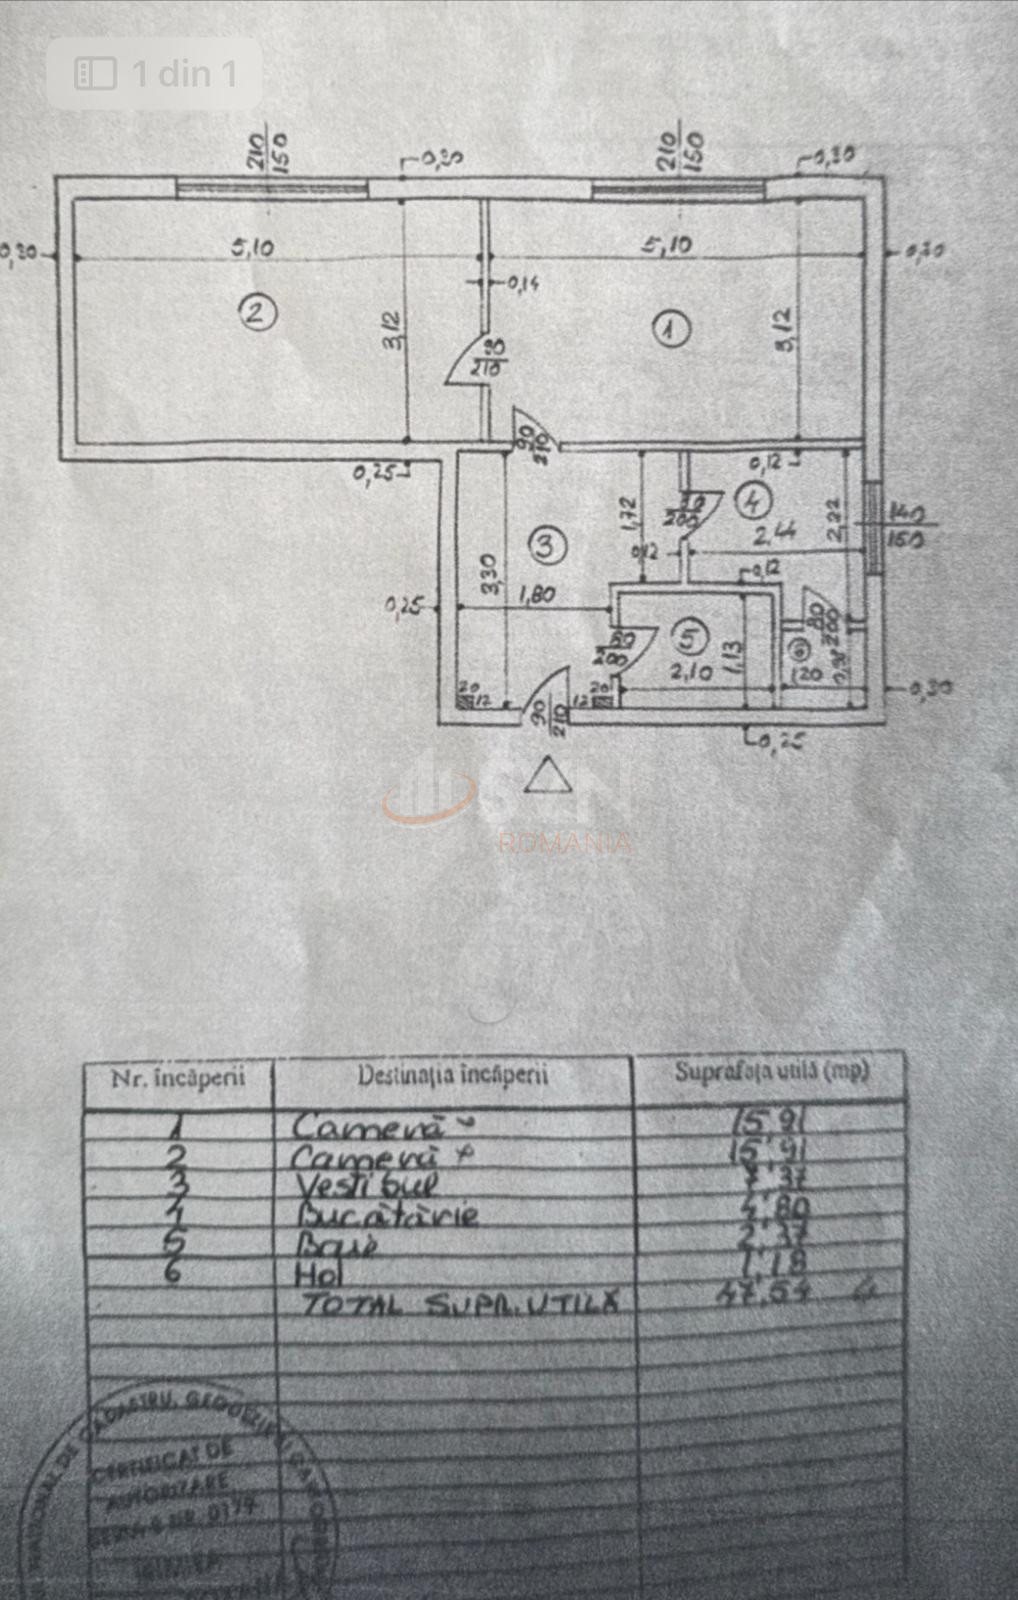 1 din 1
210
150
210
150
0,30
0,30
0,30
5,10
5,10
0,30
0,14
2
3,12
1
3,12
210
90
210
0,25
0,12
4
1,72
200
2,44
2,22
140
150
3
0,12
0,12
3,30
1,80
0,25
80
200
80
200
5
1,13
2,10
6
1,20
0,98
0,30
20
12
12
20
90
210
0,25
SAN
ROMANIA
Nr. încăperii Destinația încăperii Suprafața utilă (mp)
1 Cameră 15,91
2 Cameră 15,91
3 Vestibul 7,37
4 Bucătărie 4,80
5 Baie 2,37
6 Hol 1,18
TOTAL SUPR. UTILĂ 47,54
DE CADASTRU, GEODEZIE
CERTIFICAT DE
AUTORIZARE